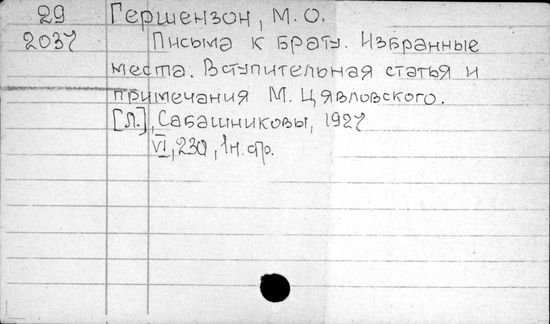 29 Гершензон, М.О.
2037 Письма к брату. Избранные
места. Вступительная статья и
примечания М. Цявловского.
[Л.], Сабашниковы, 1927
VI, 230, 1н. стр.